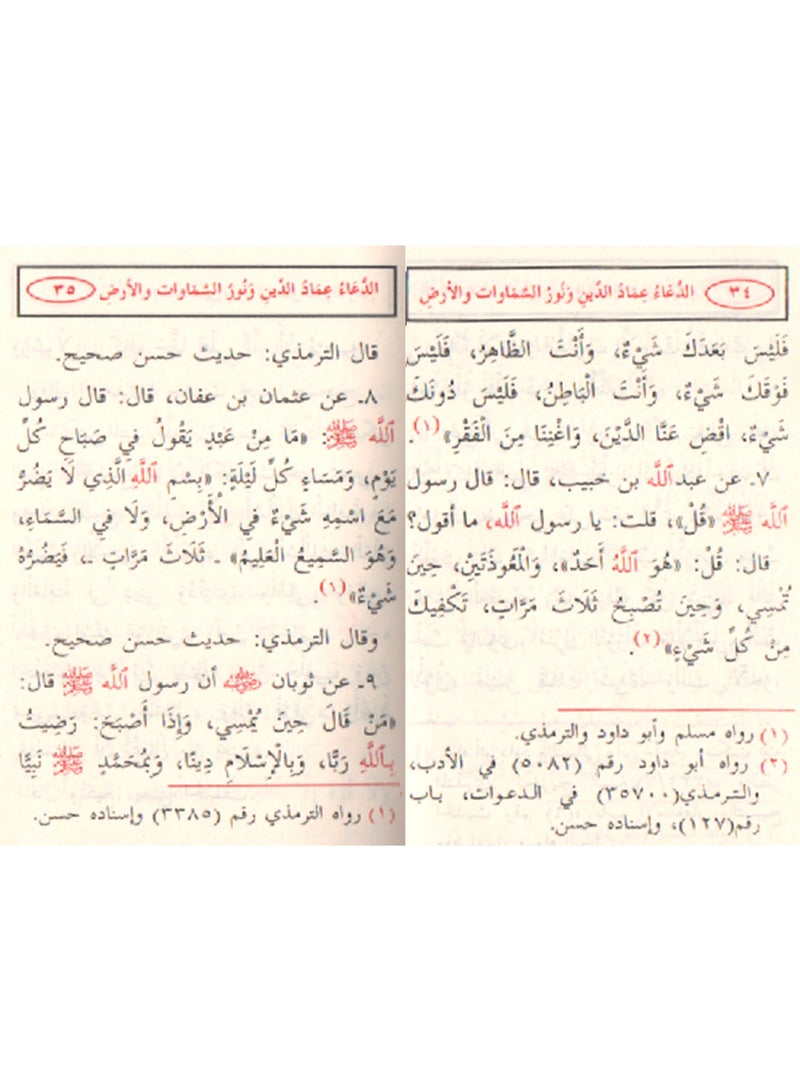 ٣٤ الدُّعَاءُ عِمَادُ الدِّينِ وَنُورُ السَّمَاوات والأرضِ
فَلَيْسَ بَعْدَكَ شَيْءٌ، وَأَنْتَ الظَّاهِرُ، فَلَيْسَ
فَوْقَكَ شَيْءٌ، وَأَنْتَ الْبَاطِنُ، فَلَيْسَ دُونَكَ
شَيْءٌ، اقْضِ عَنَّا الدَّيْنَ، وَاغْنِنَا مِنَ الْفَقْرِ»(١).
٧ـ عن عبد الله بن خبيب، قال: قال رسول
الله ﷺ «قُلْ»، قلت: يا رسول الله، ما أقول؟
قال: قُلْ: «هُوَ اللهُ أَحَدٌ»، وَالْمَعُوذَتَيْنِ، حِينَ
تُمْسِي، وَحِينَ تُصْبِحُ ثَلَاثَ مَرَّاتٍ، تَكْفِيكَ
مِنْ كُلِّ شَيْءٍ»(٢).
(١) رواه مسلم وأبو داود والترمذي.
(٢) رواه أبو داود رقم (٥٠٨٢) في الأدب،
والترمذي(٣٥٧٠٠) في الدعوات، باب
رقم(١٢٧)، وإسناده حسن.
الدُّعَاءُ عِمَادُ الدِّينِ وَنُورُ السَّمَاوات والأرضِ ٣٥
قال الترمذي: حديث حسن صحيح.
٨ـ عن عثمان بن عفان، قال: قال رسول
الله ﷺ: «مَا مِنْ عَبْدٍ يَقُولُ فِي صَبَاحِ كُلِّ
يَوْمٍ، وَمَسَاءِ كُلِّ لَيْلَةٍ: «بِسْمِ اللهِ الَّذِي لَا يَضُرُّ
مَعَ اسْمِهِ شَيْءٌ فِي الْأَرْضِ، وَلَا فِي السَّمَاءِ،
وَهُوَ السَّمِيعُ الْعَلِيمُ» ـ ثَلَاثَ مَرَّاتٍ ـ، فَيَضُرُّهُ
شَيْءٌ»(١).
وقال الترمذي: حديث حسن صحيح.
٩ـ عن ثوبان رضي الله عنه أن رسول الله ﷺ قال:
«مَنْ قَالَ حِينَ يُمْسِي، وَإِذَا أَصْبَحَ: رَضِيتُ
بِاللهِ رَبًّا، وَبِالْإِسْلَامِ دِينًا، وَبِمُحَمَّدٍ ﷺ نَبِيًّا
(١) رواه الترمذي رقم (٣٣٨٥) وإسناده حسن.